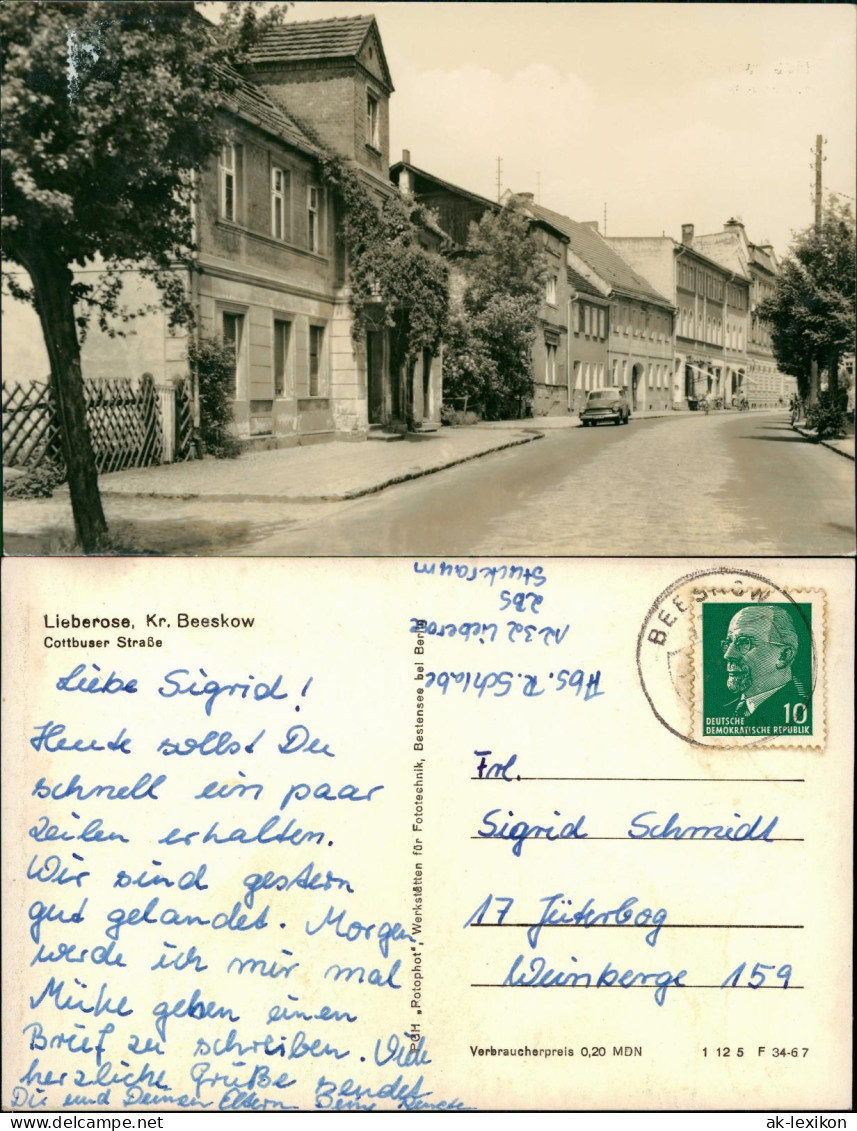 Lieberose, Kr. Beeskow
Cottbuser Straße
Liebe Sigrid!
Heute sollst Du
schnell ein paar
Zeilen erhalten.
Wir sind gestern
gut gelandet. Morgen
werde ich mir mal
Mühe geben einen
Brief zu schreiben. Viele
herzliche Grüße sendet
Dir und Deinen Eltern Deine
PGH „Potophot“, Werkstätten für Fototechnik, Bestensee bei Berlin
Abs. R. Schlabe
1232 Lieberose
2BS
Stuckraum
BEESKOW
DEUTSCHE
DEMOKRATISCHE REPUBLIK
10
Frl.
Sigrid Schmidt
17 Jüterbog
Weinberge 159
Verbraucherpreis 0,20 MDN
1 12 5 F 34-67
www.ak-ansichtskarten.de
ak-lexikon